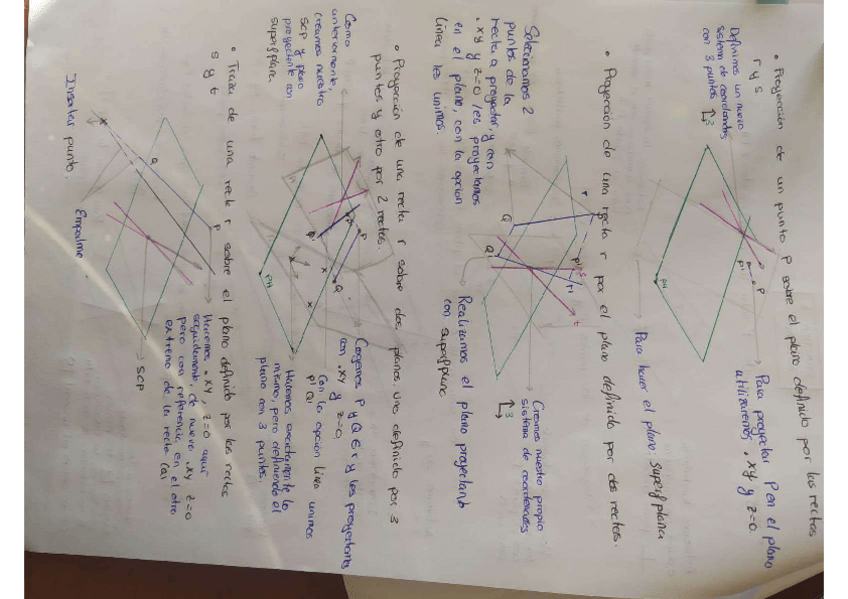 • Proyección de un punto P sobre el plano definido por las rectas
r y s
Definimos un nuevo
sistema de coordenadas
con 3 puntos
3
Para proyectar P en el plano
utilizaremos .xy y z=0.
P
P'
PH
Para hacer el plano: superf plana
• Proyección de una recta r por el plano definido por dos rectas.
Seleccionamos 2
puntos de la
recta a proyectar, y con
.xy y z=0 les proyectamos
en el plano, con la opción
línea les unimos.
r
Q
Q'
P'
s
r'
t
Creamos nuestro propio
sistema de coordenadas
3
Realizamos el plano proyectando
con superf plana
• Proyección de una recta r sobre dos planos, uno definido por 3
puntos y otro por 2 rectas.
Como
anteriormente,
creamos nuestro
SCP y plano
proyectante con
superf plana
P
Q
P'
x
x
PH
Cogemos P y Q ∈ r y les proyectamos
con .xy y z=0.
Con la opción línea unimos
P' Q'
Hacemos exactamente lo
mismo, pero definiendo el
plano con 3 puntos.
• Traza de una recta r sobre el plano definido por las rectas
s y t
P
Q
x
Hacemos .xy, z=0 aquí
seguidamente, de nuevo .xy z=0
pero con referencia en el otro
extremo de la recta (Q)
SCP
Empalme.
Insertar punto.